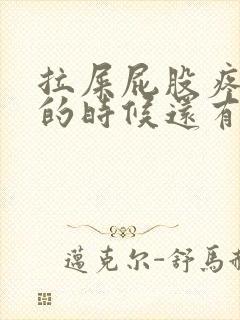 拉屎屁股疼
的时候还有
邁克尔-舒馬赫